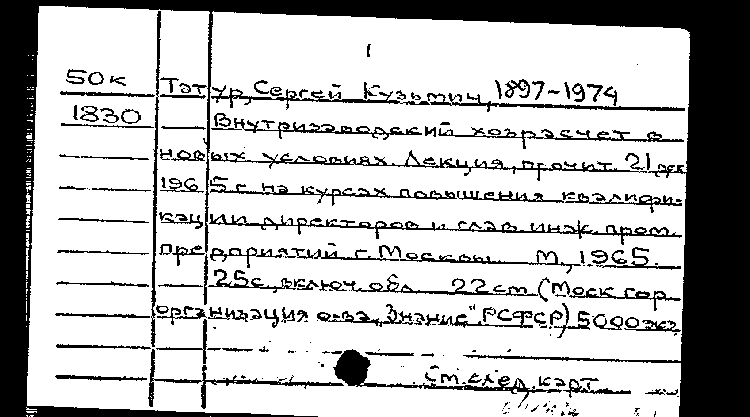 1
50к Татур, Сергей Кузьмич, 1897-1974
1830 Внутризаводский хозрасчет в
новых условиях. Лекция, прочит. 21 дек
1965 г на курсах повышения квалифи-
кации директоров и глав. инж. пром.
предприятий г. Москвы. М., 1965.
25с., включ. обл. 22 cm (Моск гор
организация о-ва "Знание" РСФСР) 5000 экз
Cm. след. карт